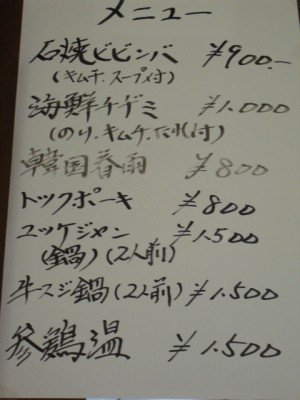 メニュー
石焼ビビンバ ¥900.-
(キムチ.スープ付)
海鮮チヂミ ¥1.000
(のり.キムチ.たれ付)
韓国春雨 ¥800
トックポーキ ¥800
ユッケジャン ¥1.500
(鍋)(2人前)
牛スジ鍋(2人前) ¥1.500
参鶏温 ¥1.500